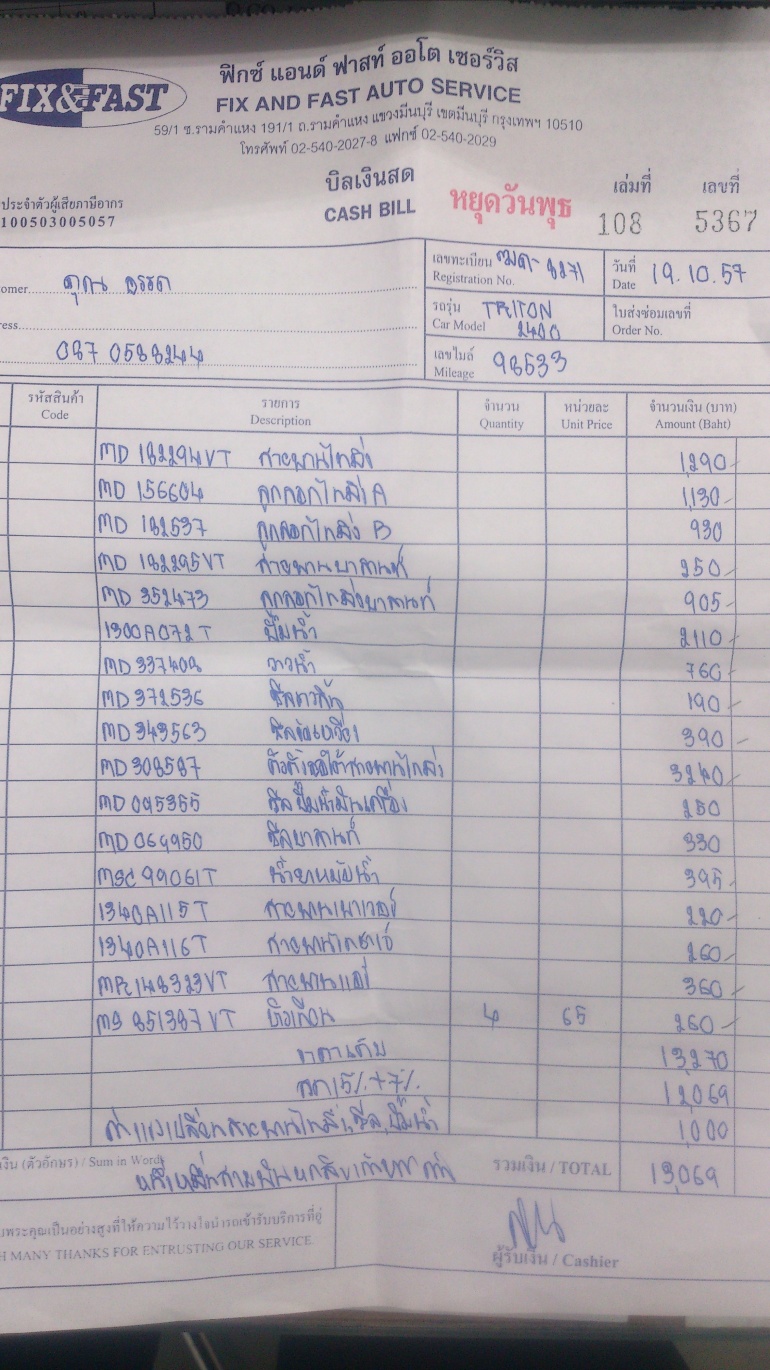 ฟิกซ์ แอนด์ ฟาสท์ ออโต เซอร์วิส
FIX&FAST
FIX AND FAST AUTO SERVICE
59/1 ซ.รามคำแหง 191/1 ถ.รามคำแหง แขวงมีนบุรี เขตมีนบุรี กรุงเทพฯ 10510
โทรศัพท์ 02-540-2027-8 แฟกซ์ 02-540-2029
บิลเงินสด
CASH BILL
หยุดวันพุธ
เล่มที่ เลขที่
108 5367
ประจำตัวผู้เสียภาษีอากร
100503005057
omer คุณ
เลขทะเบียน 8271
Registration No.
วันที่ 19.10.57
Date
ress
087 0588244
รถรุ่น TRITON
Car Model 2400
ใบสั่งซ่อมเลขที่
Order No.
เลขไมล์ 98533
Mileage
รหัสสินค้า รายการ จำนวน หน่วยละ จำนวนเงิน (บาท)
Code Description Quantity Unit Price Amount (Baht)
MD 182294VT สายพานไทม์มิ่ง 1,290
MD 156604 ลูกลอกไทม์มิ่ง A 1,130
MD 182537 ลูกลอกไทม์มิ่ง B 930
MD 182295VT สายพานบาลานซ์ 250
MD 352473 ลูกลอกไทม์มิ่งบาลานซ์ 905
1300A072T ปั๊มน้ำ 2110
MD 337408 วาวน้ำ 760
MD 372536 190
MD 343563 390
MD 308587 3240
MD 095355 ซีลปั๊มน้ำมันเครื่อง 250
MD 069950 ซีลบาลานซ์ 330
MSC 99061T น้ำยาหม้อน้ำ 395
1340A115T สายพานเพาเวอร์ 220
1340A116T สายพานไดชาร์จ 260
MR 148323VT สายพานแอร์ 360
MS 851387VT หัวเทียน 4 65 260
ราคาเต็ม 13,270
ลด 15%+7% 12,069
ค่าแรงเปลี่ยนสายพานไทม์มิ่ง,ซีล,ปั๊มน้ำ 1,000
งิน (ตัวอักษร) / Sum in Word หนึ่งหมื่นสามพันหกสิบเก้าบาทถ้วน รวมเงิน / TOTAL 13,069
บพระคุณเป็นอย่างสูงที่ให้ความไว้วางใจนำรถเข้ารับบริการที่อู่
H MANY THANKS FOR ENTRUSTING OUR SERVICE.
ผู้รับเงิน / Cashier